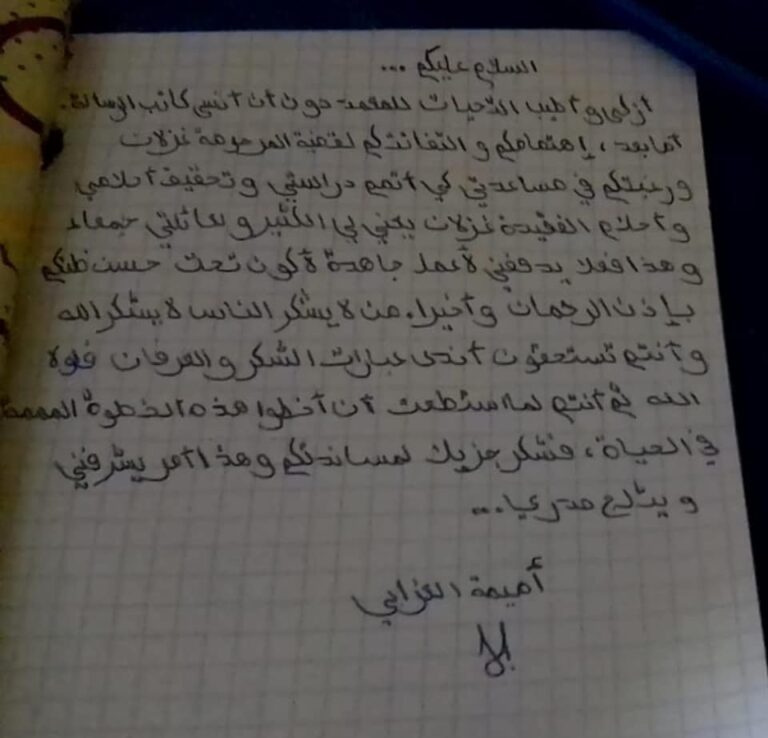 السلام عليكم ...
أزكى وأطيب التحيات للمعتمد دون أن أنسى كاتب الرسالة.
أما بعد، إهتمامكم و التفاتتكم لقضية المرحومة غزلان
ورغبتكم في مساعدتي كي أتمم دراستي وتحقيق أحلامي
وأحلام الفقيدة غزلان يعني لي الكثير ولعائلتي جمعاء
وهذا فعلا يدفعني لأعمل جاهدة لأكون تحت حسن ظنكم
بإذن الرحمان وأخيرا. من لا يشكر الناس لا يشكر الله
وأنتم تستحقون أندى عبارات الشكر والعرفان فلولا
الله ثم أنتم لما استطعت أن أخطوا هذه الخطوة المهمة
في الحياة، فشكر جزيلا لمساندتكم وهذا أمر يشرفني
ويثلج صدري...
أميمة الغزابي